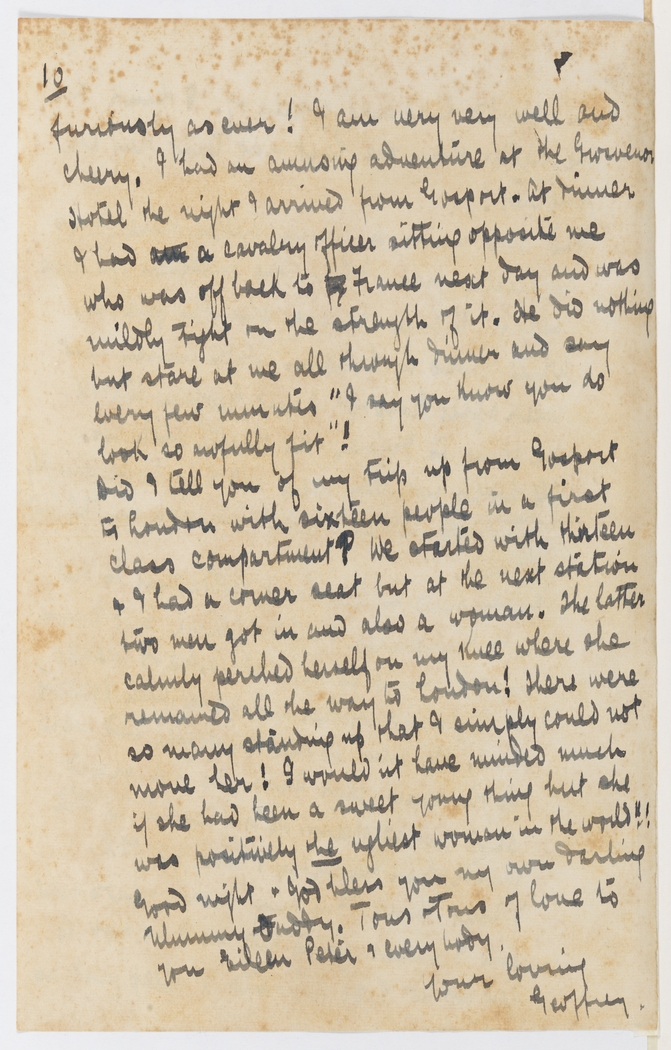 10
furiously as ever! I am very very well and
cheery. I had an amusing adventure at the Grosvenor
Hotel the night I arrived from Gosport. At dinner
I had a cavalry officer sitting opposite me
who was off back to France next day and was
mildly tight on the strength of it. He did nothing
but stare at me all through dinner and say
every few minutes "I say you know you do
look so awfully fit"!
Did I tell you of my trip up from Gosport
to London with sixteen people in a first
class compartment? We started with thirteen
+ I had a corner seat but at the next station
two men got in and also a woman. The latter
calmly perched herself on my knee where she
remained all the way to London! There were
so many standing up that I simply could not
move her! I would'nt have minded much
if she had been a sweet young thing but she
was positively the ugliest woman in the world!!!
Good night + God bless you my own darling
Mummy Duddy. Tons + Tons of love to
you Eileen Peter + everybody.
Your loving
Geoffrey.